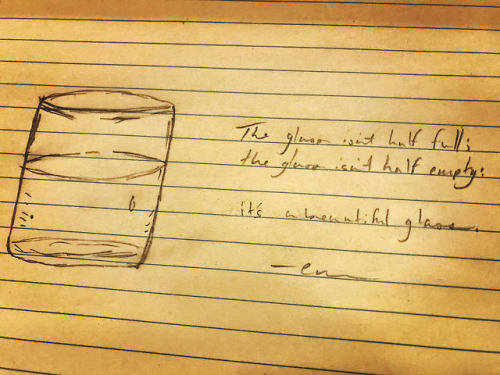 The glass isn't half full;
the glass isn't half empty:
it's a beautiful glass.